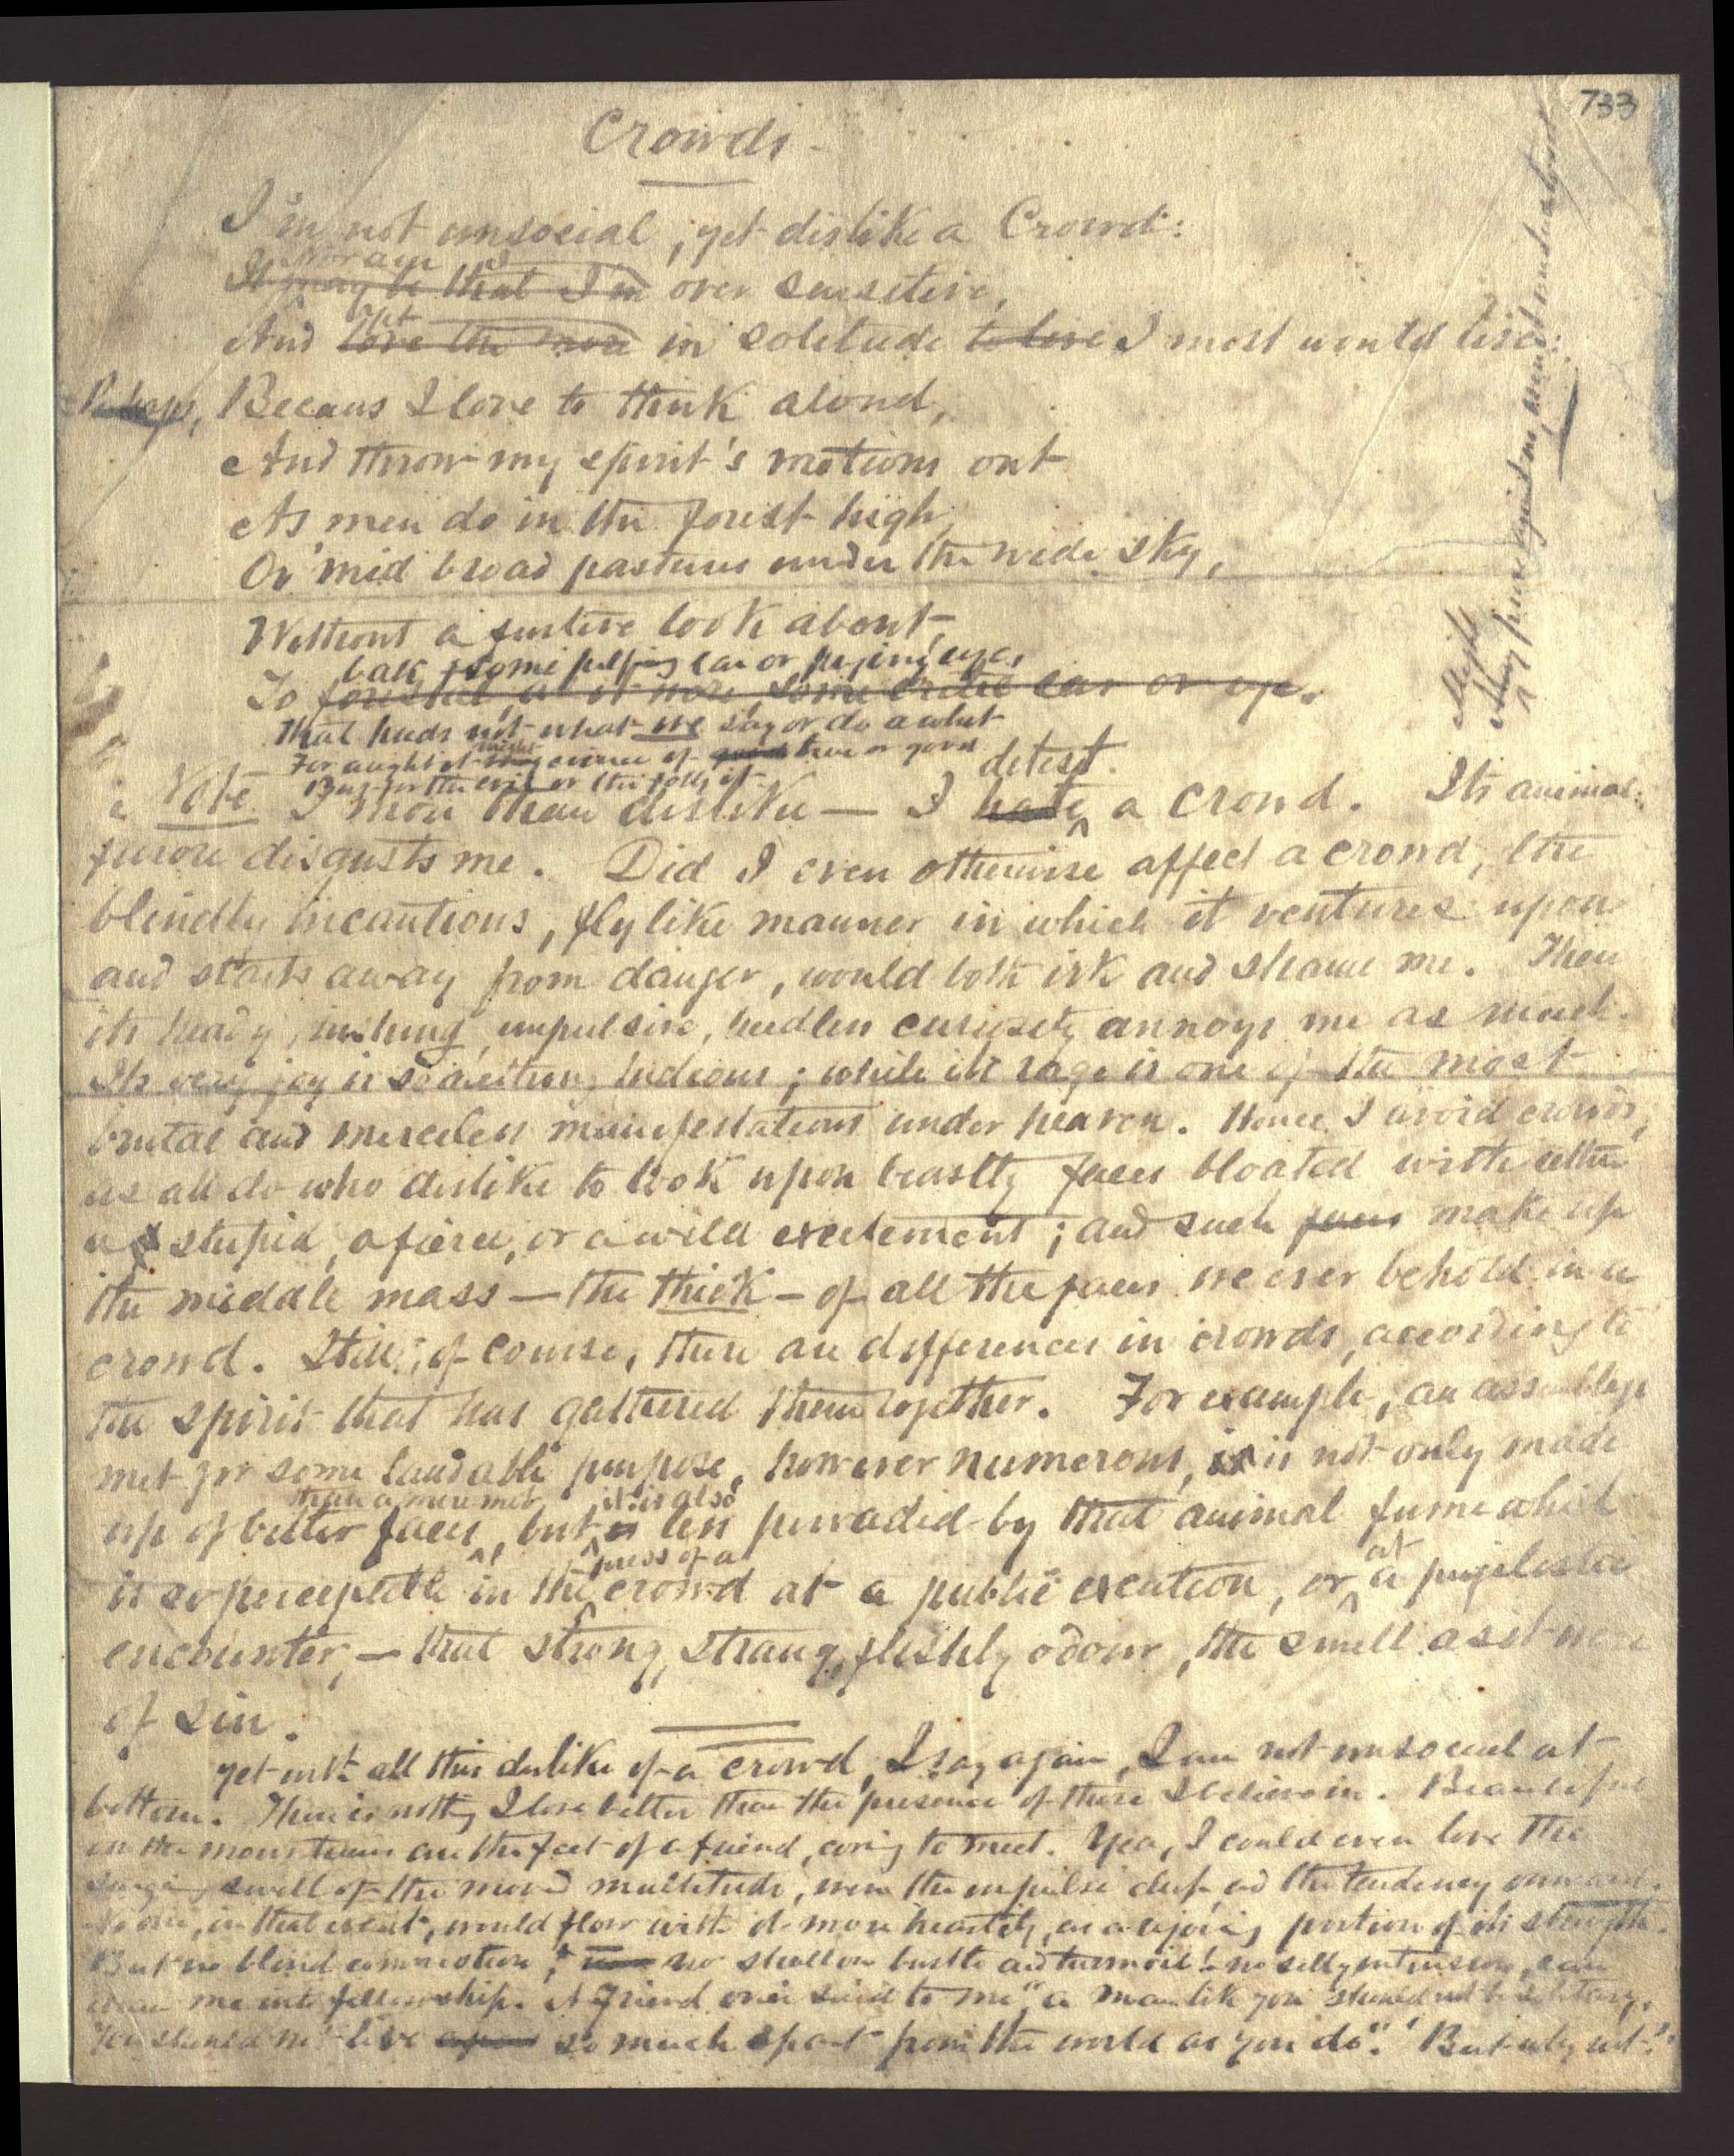 733
Crowds -
I'm not unsocial, yet dislike a Crowd:
Nor am I
It may be that I'm over sensitive,
yet
And love the more in solitude to live I most would live:
Perhaps, Becaus I love to think aloud,
And throw my spirit's motions out
As men do in the forest high,
Or 'mid broad pastures under the wide sky,
Without a furtive look about,
balk some pilfering ear or prying eye,
To forestal, as it were, some critic ear or eye.
That heeds not what we say or do a whit
For aught it might evince of good true or good
But for the evil or the folly of it
Note I more than dislike — I hate a crowd. Its animal
detest.
furore disgusts me. Did I even otherwise affect a crowd, the
blindly incautious, fly like manner in which it ventures upon
and starts away from danger, would both irk and shame me. Then
its heady, rushing, impulsive, heedless curiosity annoys me as much.
Its very joy is something hideous; while its rage is one of the most
brutal and merciless manifestations under heaven. Hence I avoid crowds,
as all do who dislike to look upon beastly faces bloated with either
a stupid, a fierce, or a wild excitement; and such faces make up
the middle mass — the thick — of all the faces we ever behold in a
crowd. Still, of course, there are differences in crowds, according to
the spirit that has gathered them together. For example, an assemblage
met for some laudable purpose, however numerous, is is not only made
than a mere mob, it is also
up of better faces, but is less pervaded by that animal fume which
press of a
at
is so perceptible in the crowd at a public execution, or a pugilistic
encounter, — that strong, strange, fleshly odour, the smell as it were
of sin.
Yet with all this dislike of a crowd, I say again, I am not unsocial at
bottom. There is nothing I love better than the presence of those I believe in. Beautiful
on the mountains are the feet of a friend, coming to meet. Yea, I could even love the
surging swell of the moved multitude, were the impulse deep and the tendency onward.
No one, in that event, would flow with it more heartily, as a rejoicing portion of its strength.
But no blind commotion, no shallow bustle and turmoil! no silly pretension, can
me into fellowship. A friend once said to me "a man like you should not be solitary.
You should not live apart so much apart from the world as you do." "But why not?"